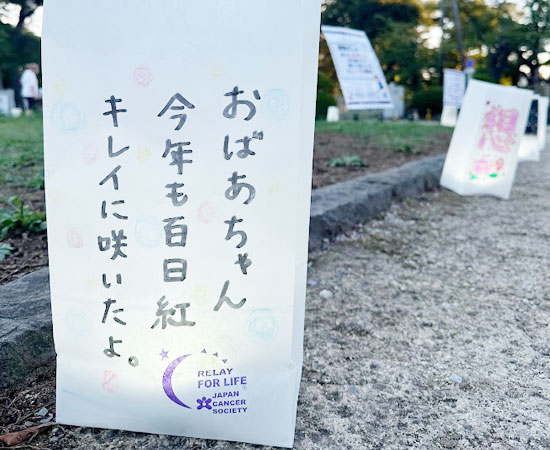 おばあちゃん
今年も百日紅
キレイに咲いたよ。
RELAY
FOR LIFE
JAPAN
CANCER
SOCIETY